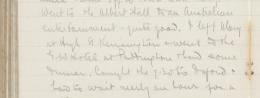 went to the Albert Hall to an Australian
entertainment - quite good. I left Mary
at High St. Kensington & went to the
G.W. Hotel at Paddington & had some
dinner. Caught the 7.30 to Oxford &
had to wait nearly an hour for a